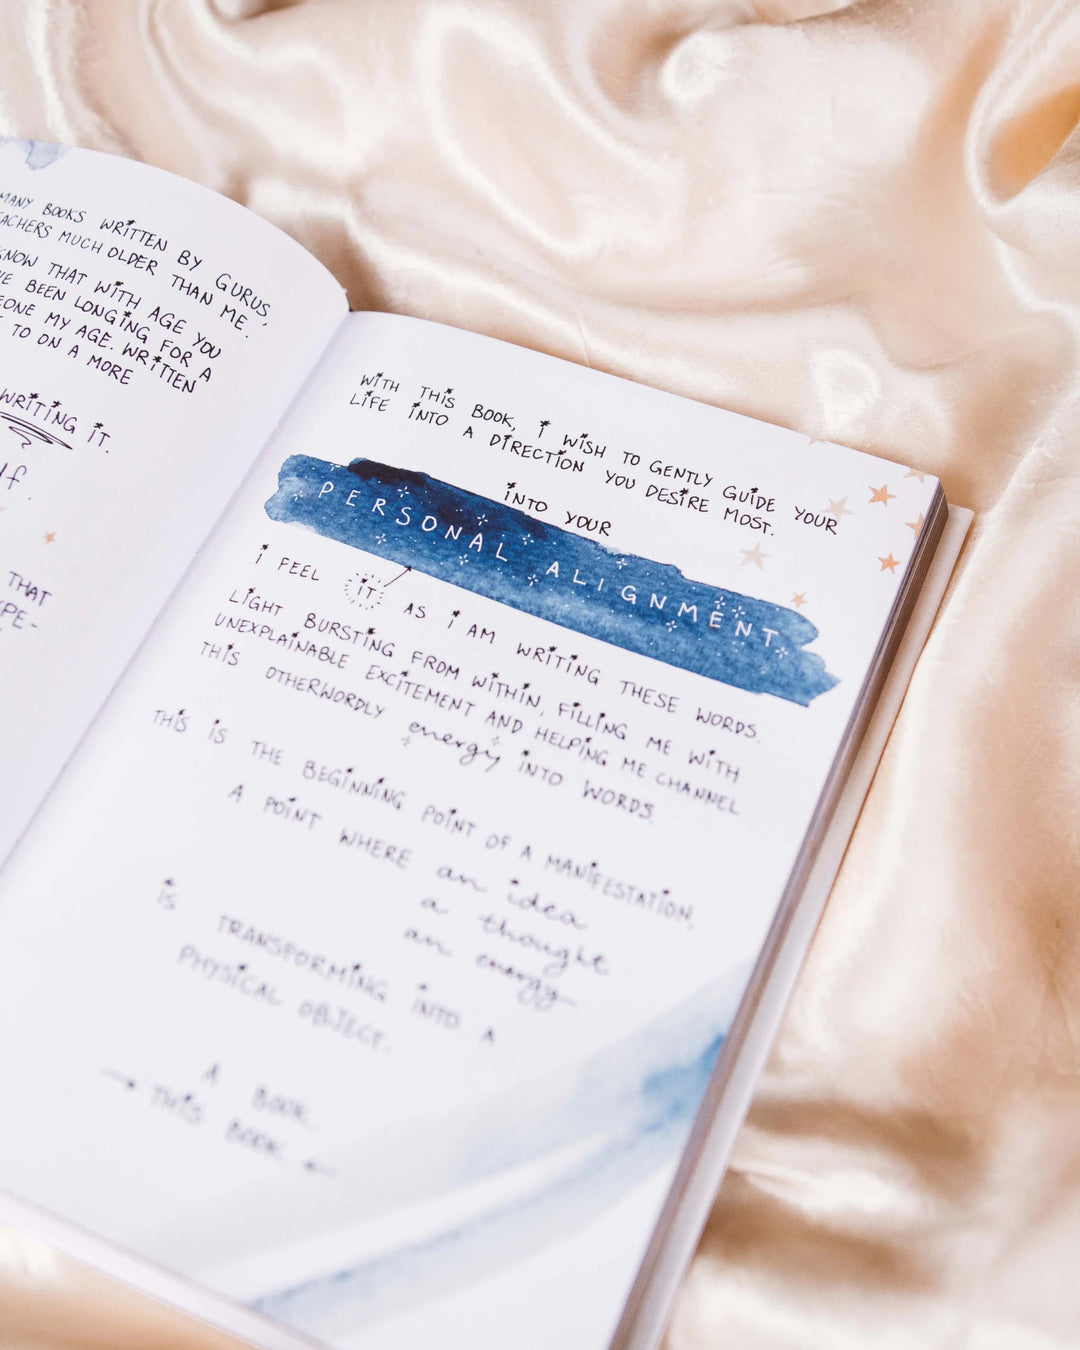 MANY BOOKS WRITTEN BY GURUS,
TEACHERS MUCH OLDER THAN ME.
KNOW THAT WITH AGE YOU
BEEN LONGING FOR A
MY AGE. WRITTEN
TO ON A MORE
WRITING IT.
THAT
WITH THIS BOOK, I WISH TO GENTLY GUIDE YOUR
LIFE INTO A DIRECTION YOU DESIRE MOST.
INTO YOUR
PERSONAL ALIGNMENT
I FEEL IT AS I AM WRITING THESE WORDS.
LIGHT BURSTING FROM WITHIN, FILLING ME WITH
UNEXPLAINABLE EXCITEMENT AND HELPING ME CHANNEL
THIS OTHERWORDLY energy INTO WORDS.
THIS IS THE BEGINNING POINT OF A MANIFESTATION,
A POINT WHERE an idea
a thought
an energy
IS
TRANSFORMING INTO A
PHYSICAL OBJECT.
A BOOK.
→ THIS BOOK ←